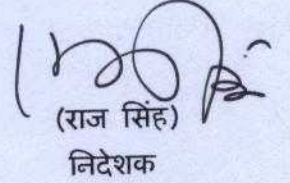 (राज सिंह)
निदेशक